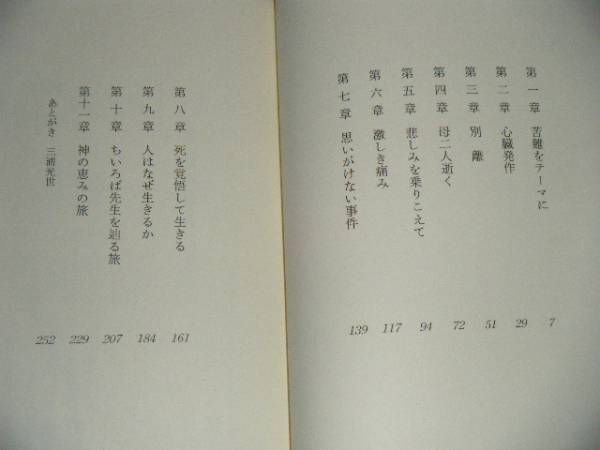 第一章 苦難をテーマに 7
第二章 心臓発作 29
第三章 別離 51
第四章 母二人逝く 72
第五章 悲しみを乗りこえて 94
第六章 激しき痛み 117
第七章 思いがけない事件 139
第八章 死を覚悟して生きる 161
第九章 人はなぜ生きるか 184
第十章 ちいろば先生を辿る旅 207
第十一章 神の恵みの旅 229
あとがき 三浦光世 252